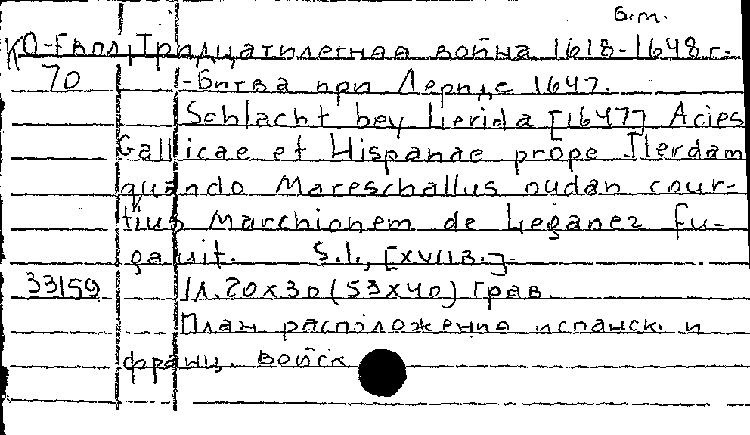 б.м.
КО-Европ, Тридцатилетняя война 1618-1648 г.-
70 -Битва при Лериде 1647.
Schlacht bey Lierida [1647] Acies
Gallicae et Hispanae prope Ilerdam
quando Mareschallus oudan cour-
tius Marchionem de Leganez fu-
gavit. S.l., [XVII в.].
33159 1 л. 20х30 (53х40) Грав.
План расположения испанск. и
франц. войск